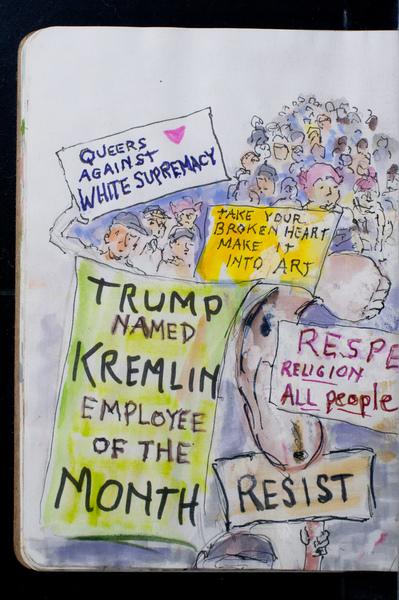 QUEERS
AGAINST
WHITE SUPREMACY
TAKE YOUR
BROKEN HEART
MAKE IT
INTO ART
TRUMP
NAMED
KREMLIN
EMPLOYEE
OF THE
MONTH
RESPE
RELIGION
ALL people
RESIST